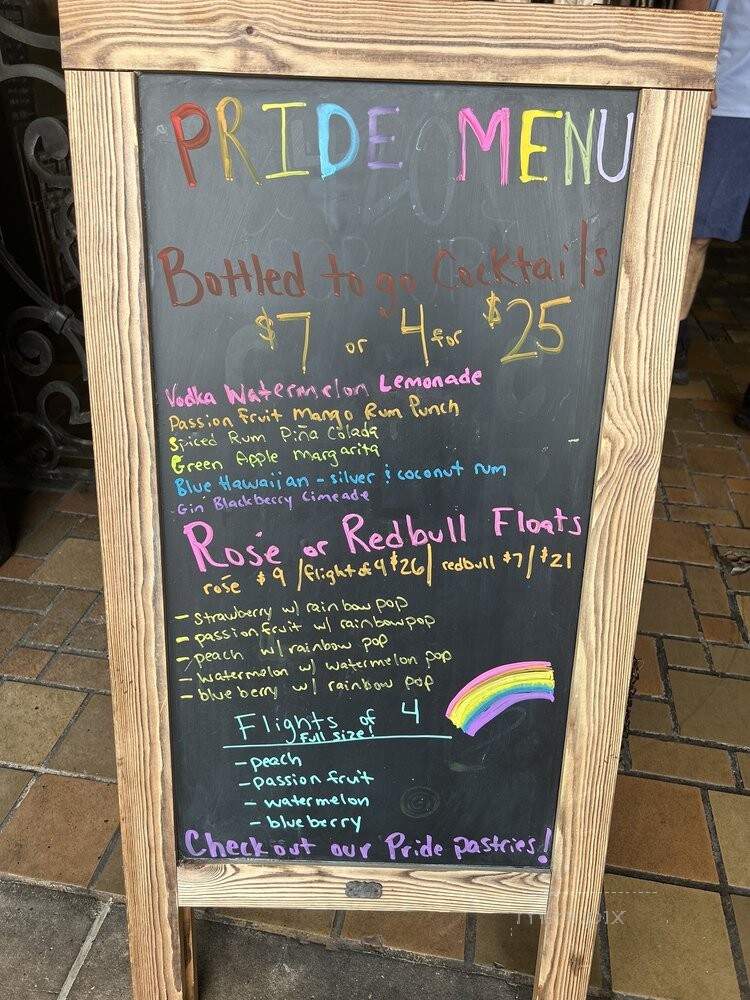 PRIDE MENU
Bottled to go Cocktails
$7 or 4 for $25
Vodka Watermelon Lemonade
Passion Fruit Mango Rum Punch
Spiced Rum Piña Colada
Green Apple Margarita
Blue Hawaiian - silver & coconut rum
Gin Blackberry Limeade
Rosé or Redbull Floats
rosé $9 / flight of 4 $26 / redbull $7 / $21
- strawberry w/ rainbow pop
- passionfruit w/ rainbow pop
- peach w/ rainbow pop
- watermelon w/ watermelon pop
- blueberry w/ rainbow pop
Flights of 4
full size!
- peach
- passion fruit
- watermelon
- blueberry
Check out our Pride pastries!